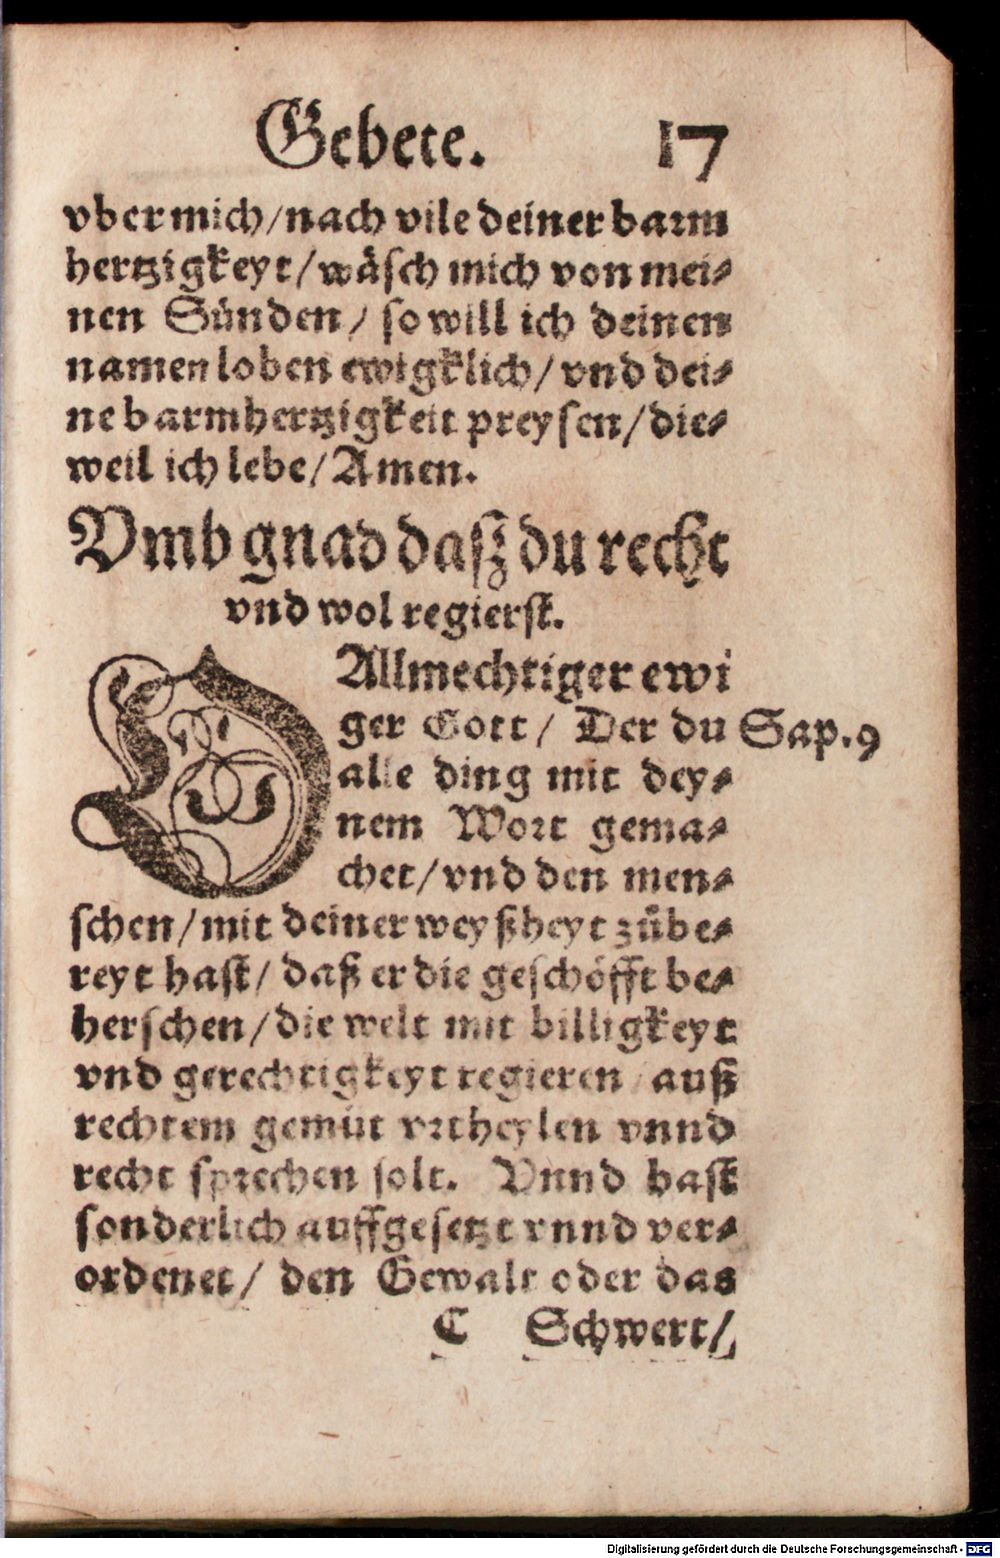 Gebete. 17
vber mich/nach vile deiner barm
hertzigkeyt/wäsch mich von mei⸗
nen Sünden/ so will ich deinen
namen loben ewigklich/vnd dei⸗
ne barmhertzigkeit preysen/die⸗
weil ich lebe/Amen.
Vmb gnad dasz du recht
vnd wol regierst.
O Allmechtiger ewi
ger Gott/ Der du Sap.9
alle ding mit dey⸗
nem Wort gema⸗
chet/vnd den men⸗
schen/mit deiner weyßheyt zůbe⸗
reyt hast/ daß er die geschöfft be⸗
herschen/die welt mit billigkeyt
vnd gerechtigkeyt regieren/auß
rechtem gemüt vrtheylen vnnd
recht sprechen solt. Vnnd hast
sonderlich auffgesetzt vnnd ver⸗
ordenet/ den Gewalt oder das
C Schwert/
Digitalisierung gefördert durch die Deutsche Forschungsgemeinschaft - DFG